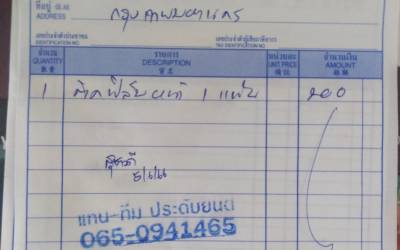 ที่อยู่ (地址)
ADDRESS กรุงเทพมหานคร
เลขประจำตัวประชาชน
IDENTIFICATION NO.
เลขประจำตัวผู้เสียภาษีอากร
TAX IDENTIFICATION NO.
จำนวน
QUANTITY
數量
รายการ
DESCRIPTION
貨名
หน่วยละ
UNIT PRICE
จำนวนเงิน
AMOUNT
1 ติดฟิล์ม 1 แผ่น
แทน-ทีม ประดับยนต์
065-0941465